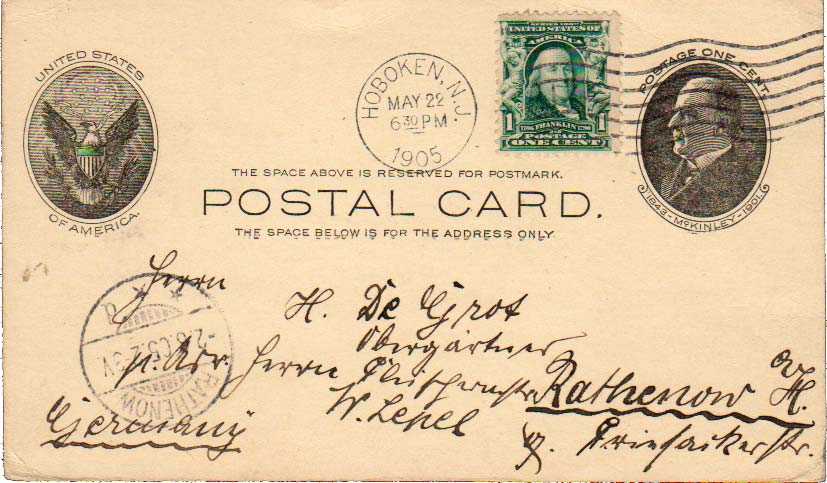 UNITED STATES
OF AMERICA.
HOBOKEN, N.J.
MAY 22
6 30 PM
1905
SERIES 1902
UNITED STATES OF
AMERICA
1706 FRANKLIN 1790
1 POSTAGE 1
ONE CENT
POSTAGE ONE CENT.
1843-McKINLEY-1901.
THE SPACE ABOVE IS RESERVED FOR POSTMARK.
POSTAL CARD.
THE SPACE BELOW IS FOR THE ADDRESS ONLY.
Herrn
H. De Grot
Obergärtner
Herrn
W. Lepel
Rathenow
Germany
RATHENOW